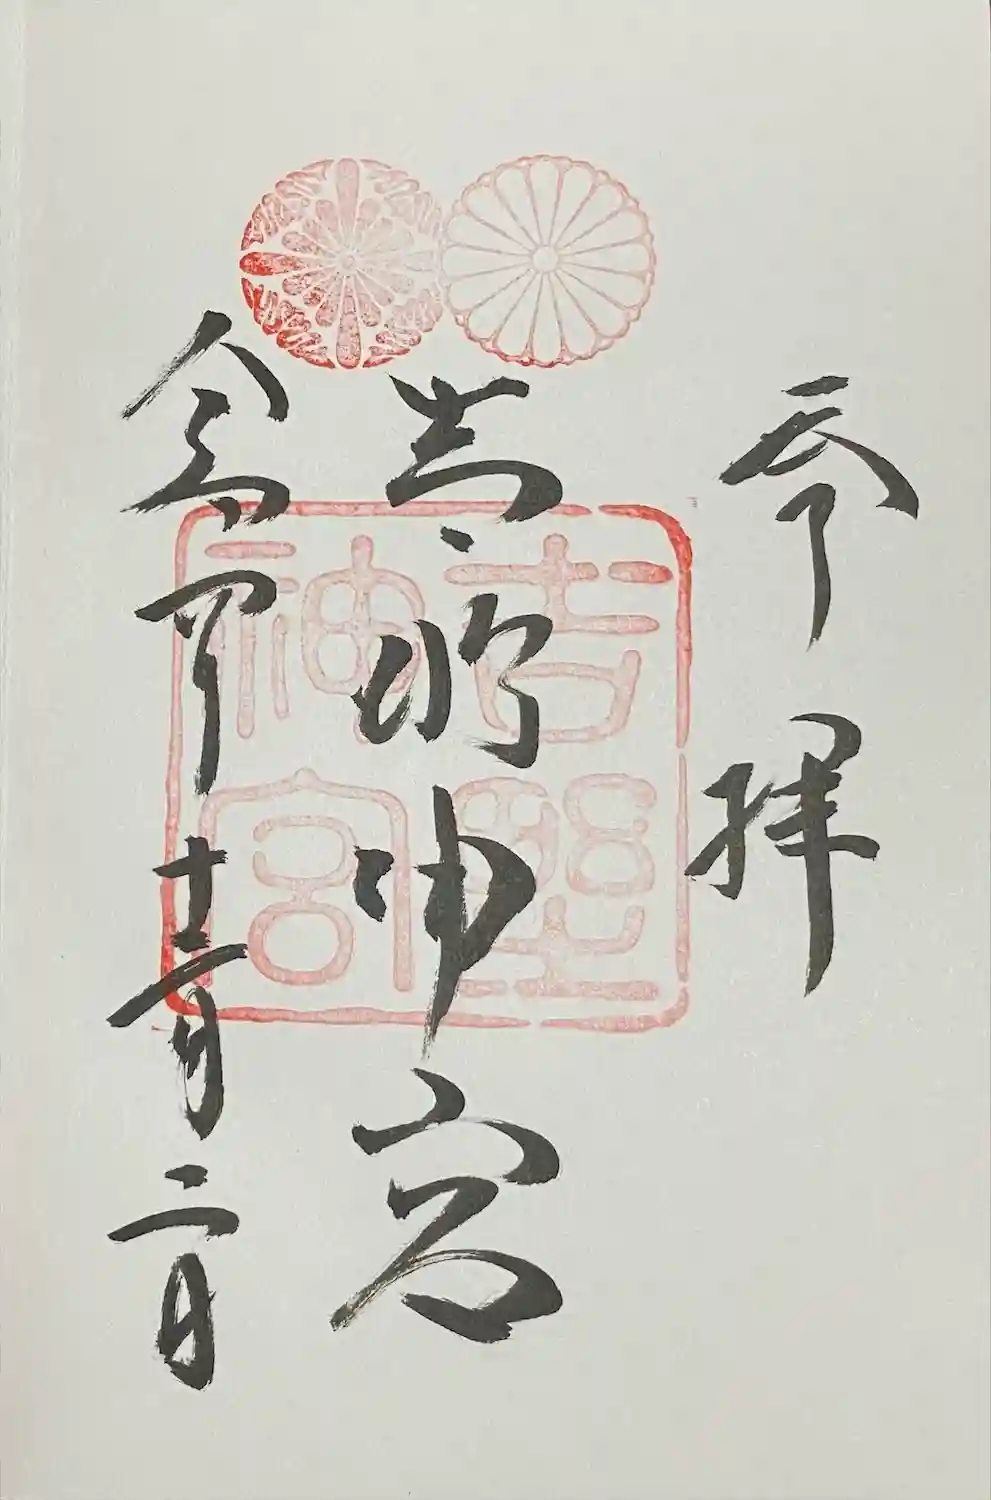 奉拝
吉野神宮
吉野神宮
令 年十二月二日